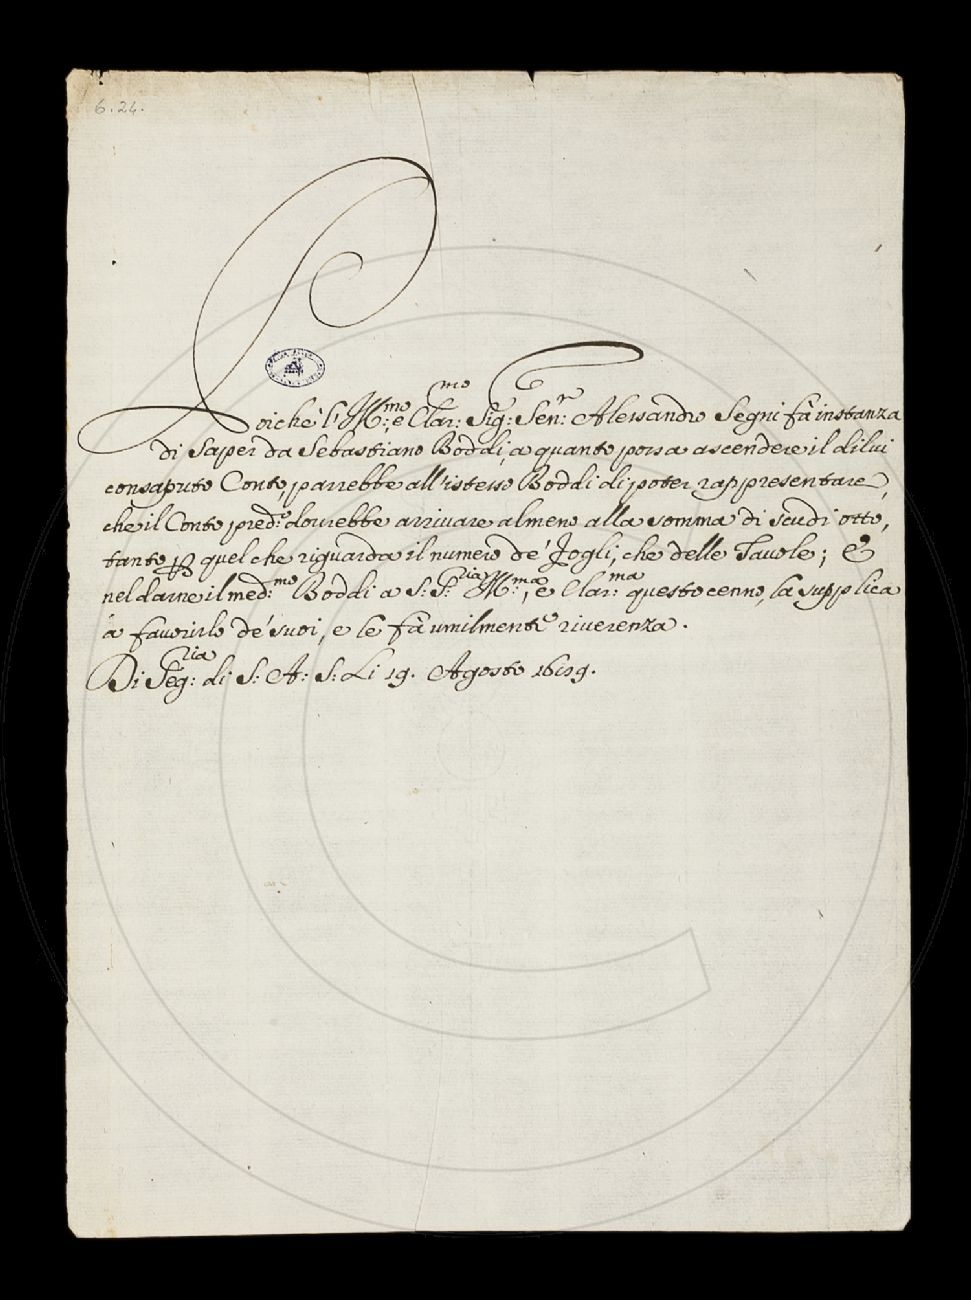 6.24.
Poiche l'Ill:mo, e Clar:mo Sig:r Sen:r Alessandro Segni fà instanza
di saper da Sebastiano Boddi, a quanto possa ascendere il di lui
consaputo Conto, parrebbe all'istesso Boddi di poter rappresentare,
che il Conto pred:o dovrebbe arrivare almeno alla somma di scudi otto,
tanto quel che riguarda il numero de' fogli, che delle Tavole; &
nel darne il med:mo Boddi a S: S:ria Ill:ma, e Clar:ma questo cenno, la supplica
a favorirlo de' suoi, e le fà umilmente riverenza.
Di Seg:ria di S: A: S: Li 19. Agosto